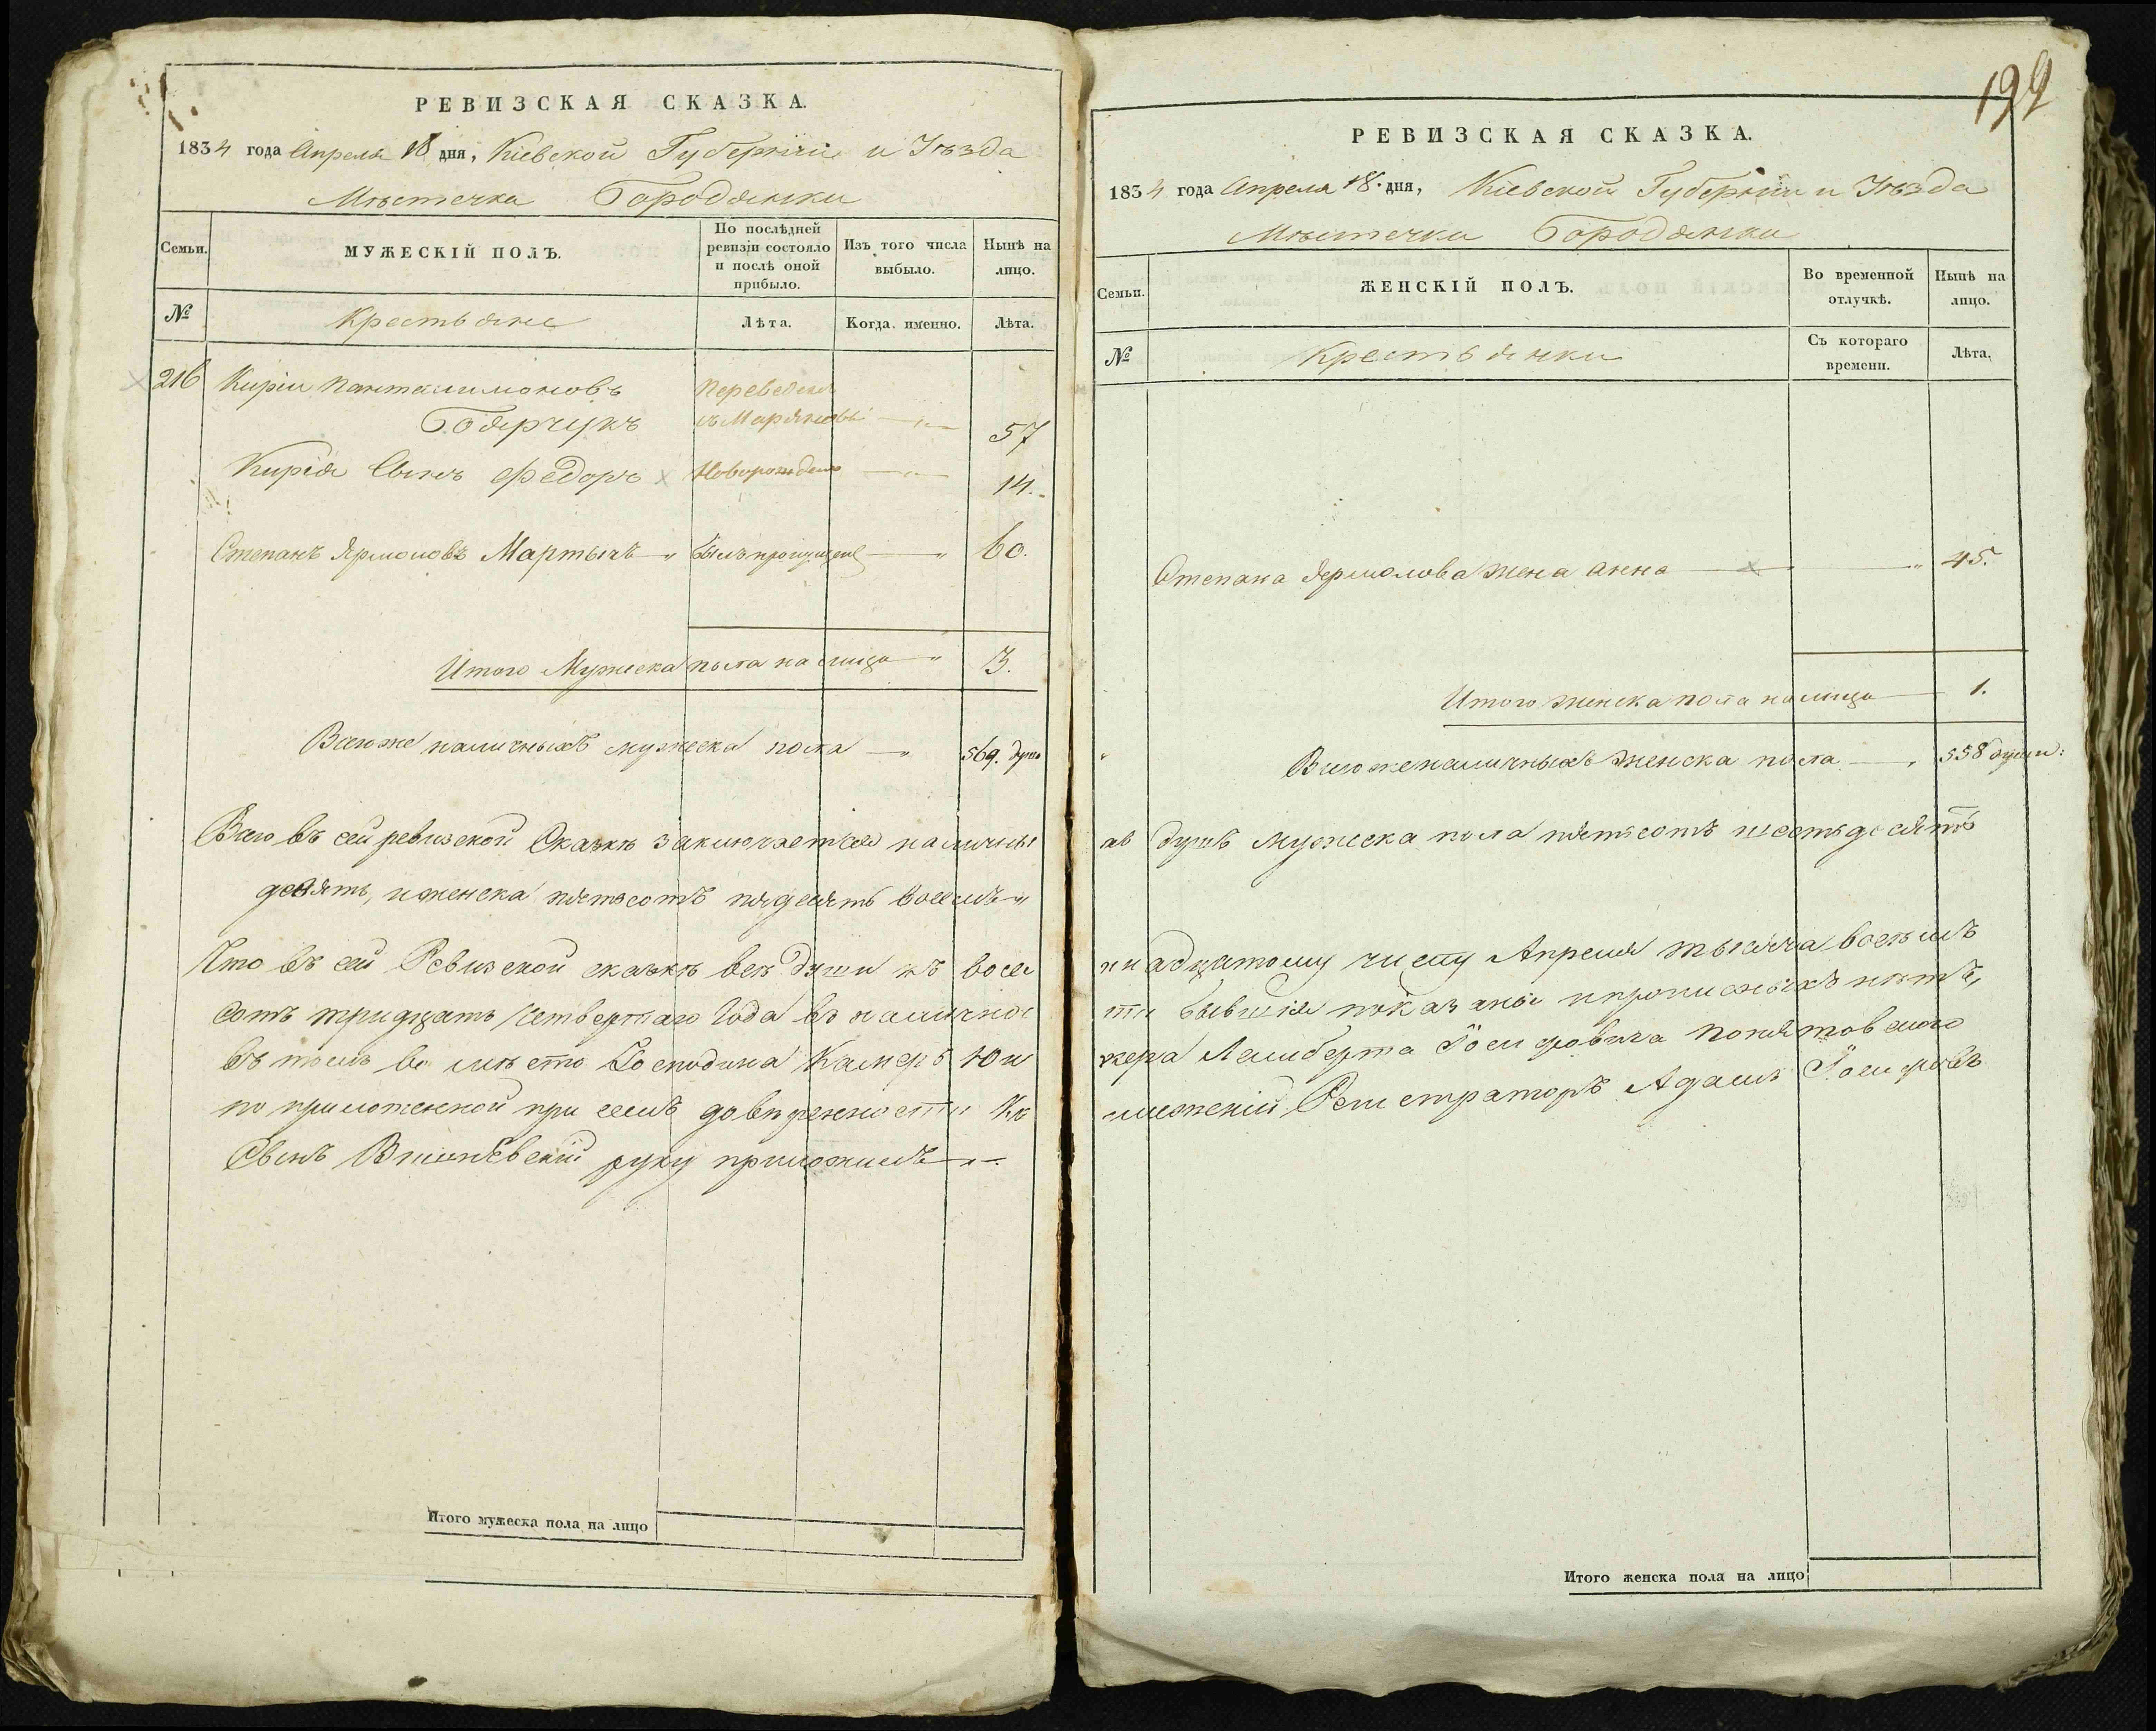 РЕВИЗСКАЯ СКАЗКА.
1834 года Апреля 18 дня, Кіевской Губерніи и Уѣзда
Мѣстечка Бородянки
Семьи.
МУЖЕСКІЙ ПОЛЪ.
По послѣдней ревизіи состояло и послѣ оной прибыло.
Изъ того числа выбыло.
Нынѣ на лицо.
№
Крестьяне
Лѣта.
Когда именно.
Лѣта.
216 Кирій Панталимоновъ Переведенъ
Боярчукъ 57
Кирія Сынъ Федоръ Новорожденъ 14.
Степанъ Ярмоловъ Мартычъ Былъ пропущенъ 60.
Итого Мужеска пола на лицо 3.
Всего же наличныхъ мужеска пола 569. душъ
Всего въ сей ревизской Сказкѣ заключается наличны
девять, и женска пятьсотъ пядесять восемъ
Что въ сей Ревизской сказкѣ всѣ души къ восем
сотъ тридцать четвертаго Года въ наличнос
въ томъ вмѣсто Господина Камеръ Юн
по приложенной при семъ довѣренности
Сынъ Вишневскій руку приложилъ
Итого мужеска пола на лицо
199
РЕВИЗСКАЯ СКАЗКА.
1834 года Апреля 18 дня, Кіевской Губерніи и Уѣзда
Мѣстечка Бородянки
Семьи.
ЖЕНСКІЙ ПОЛЪ.
Во временной отлучкѣ.
Нынѣ на лицо.
№
Крестьянки
Съ котораго времени.
Лѣта.
Степана Ярмолова жена Анна 45.
Итого женска пола на лицо 1.
Всего же наличныхъ женска пола 558 душъ:
хъ душъ мужеска пола пятьсотъ шестьдесятъ
надцатому числу Апреля тысяча восемъ
ти бывшія показаны и прописныхъ нѣтъ,
кера Ламберта Іосифовича Понятовскаго
Регистраторъ Адамъ Іосифовъ
Итого женска пола на лицо